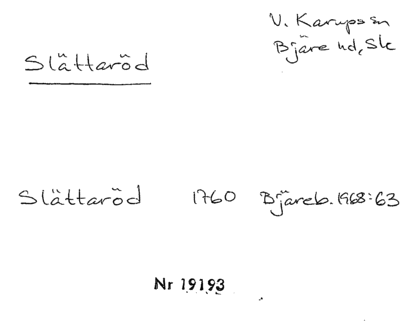 V. Karups sn
Bjäre hd, Sk
Slättaröd
Slättaröd 1760 Bjäreb. 1968:63
Nr 19193